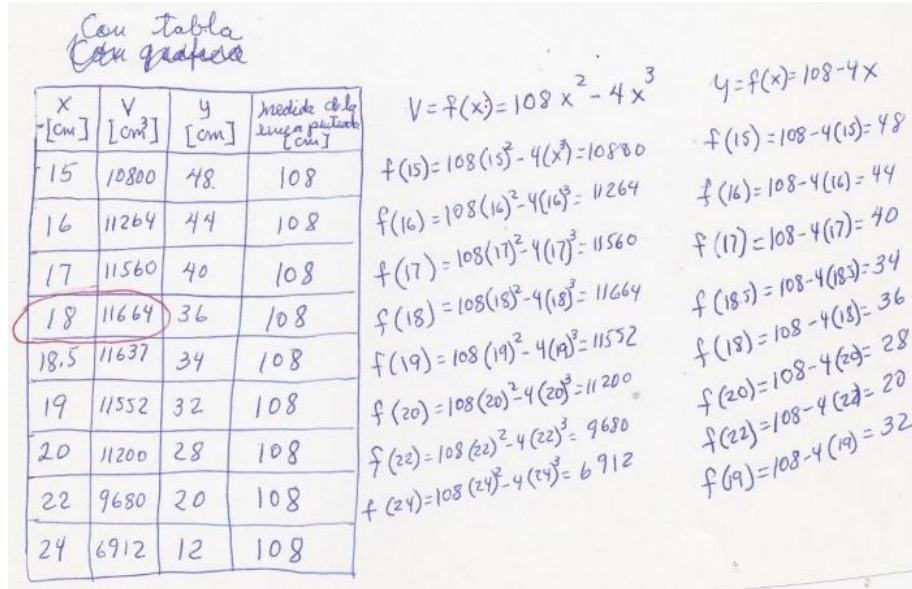 Con tabla
Con grafica
X [cm] V [cm³] y [cm] medida de la linea punteada [cm]
15 10800 48 108
16 11264 44 108
17 11560 40 108
18 11664 36 108
18.5 11637 34 108
19 11552 32 108
20 11200 28 108
22 9680 20 108
24 6912 12 108
V=f(x)=108x²-4x³
f(15)=108(15)²-4(x³)=10880
f(16)=108(16)²-4(16)³=11264
f(17)=108(17)²-4(17)³=11560
f(18)=108(18)²-4(18)³=11664
f(19)=108(19)²-4(19)³=11552
f(20)=108(20)²-4(20)³=11200
f(22)=108(22)²-4(22)³=9680
f(24)=108(24)²-4(24)³=6912
y=f(x)=108-4x
f(15)=108-4(15)=48
f(16)=108-4(16)=44
f(17)=108-4(17)=40
f(18.5)=108-4(18.5)=34
f(18)=108-4(18)=36
f(20)=108-4(20)=28
f(22)=108-4(22)=20
f(19)=108-4(19)=32